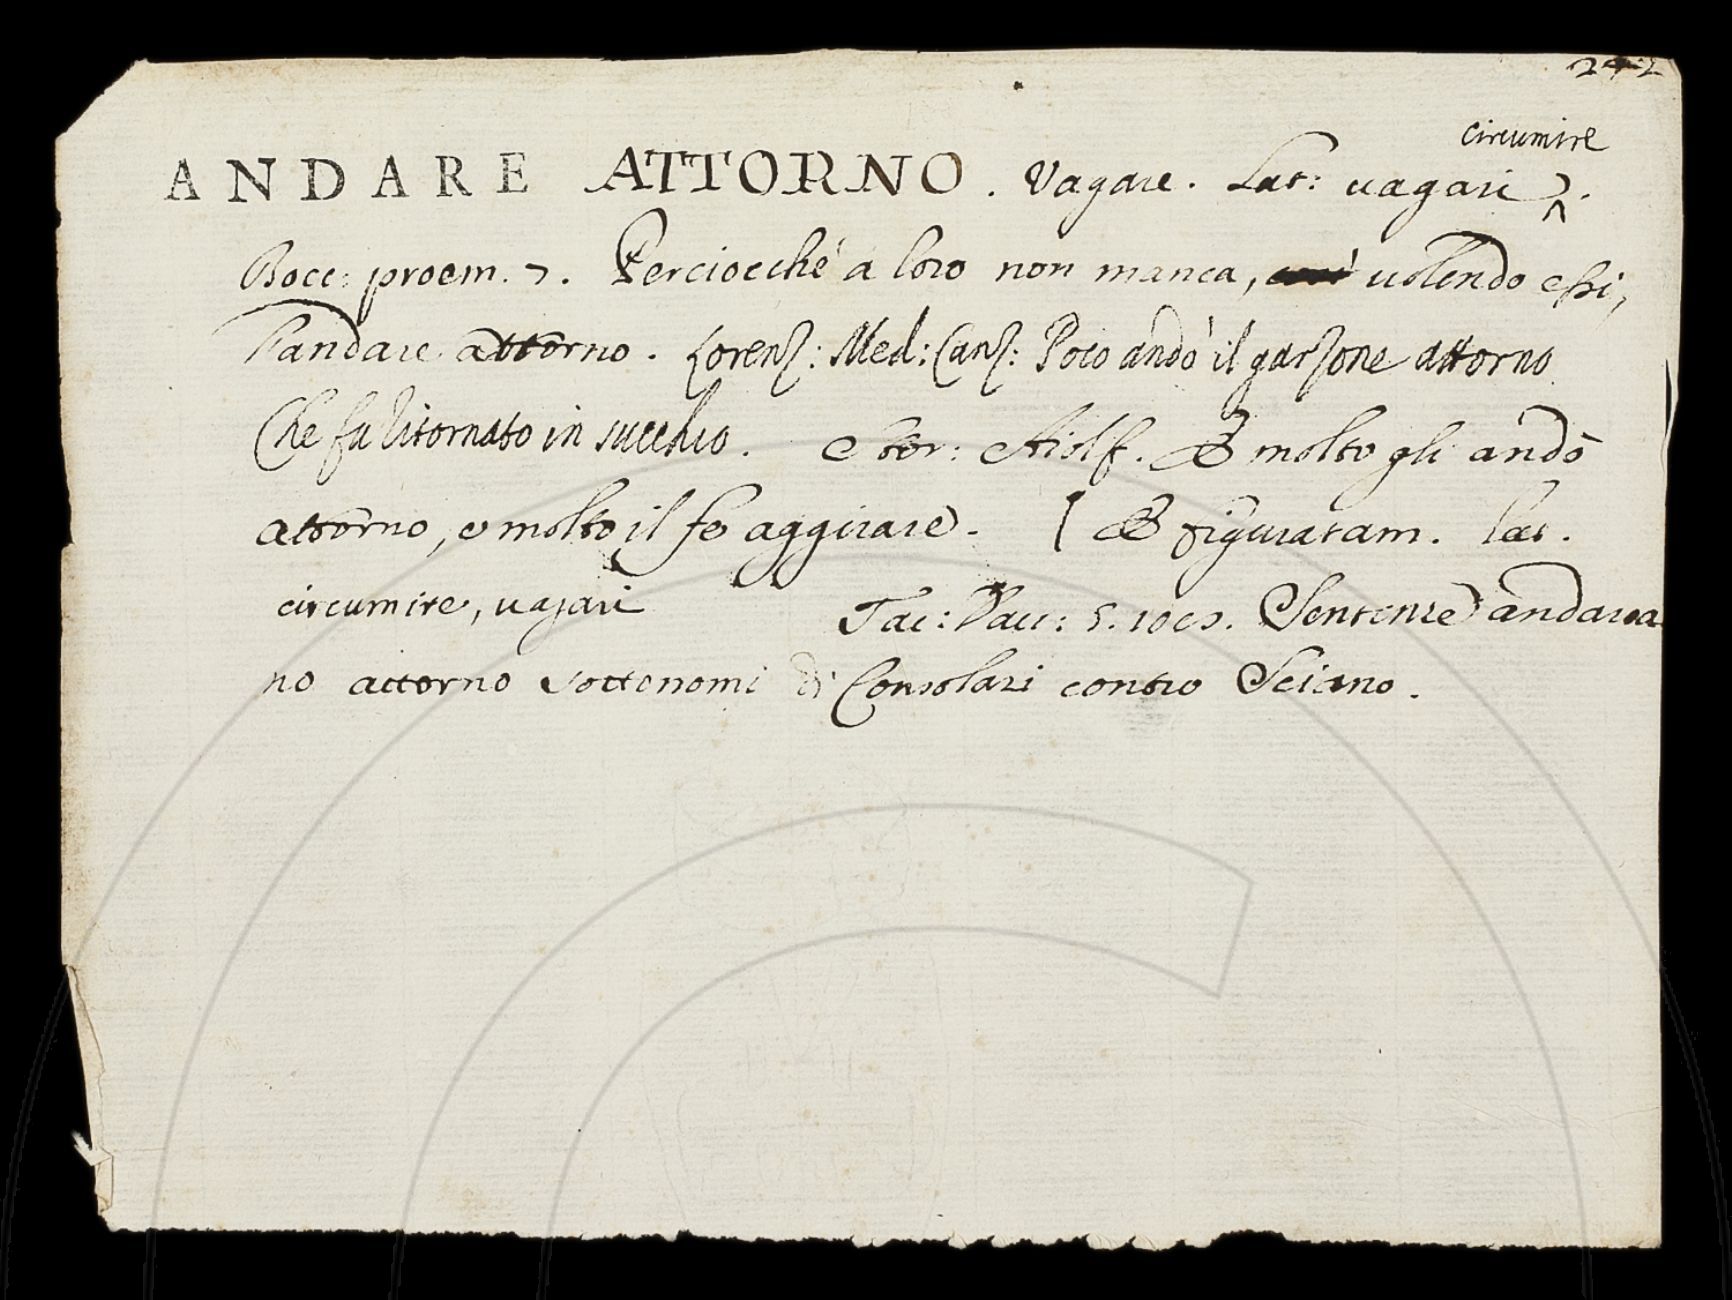 242
circumire
ANDARE ATTORNO. Vagare. Lat: uagari ^.
Bocc: proem. 7. Perciocché a loro non manca, uolendo essi,
l'andare attorno. Lorenz: Med: Canz: Poco andò il garzone attorno
Che fu ritornato in succhio. Stor: Aiolf. Et molto gli andò
attorno, e molto il fe aggirare. [ Et figuratam. lat.
circumire, uagari Tac: Dau: 5. Sentenze andaua
no attorno sottonomi di Consolari contro Seiano.